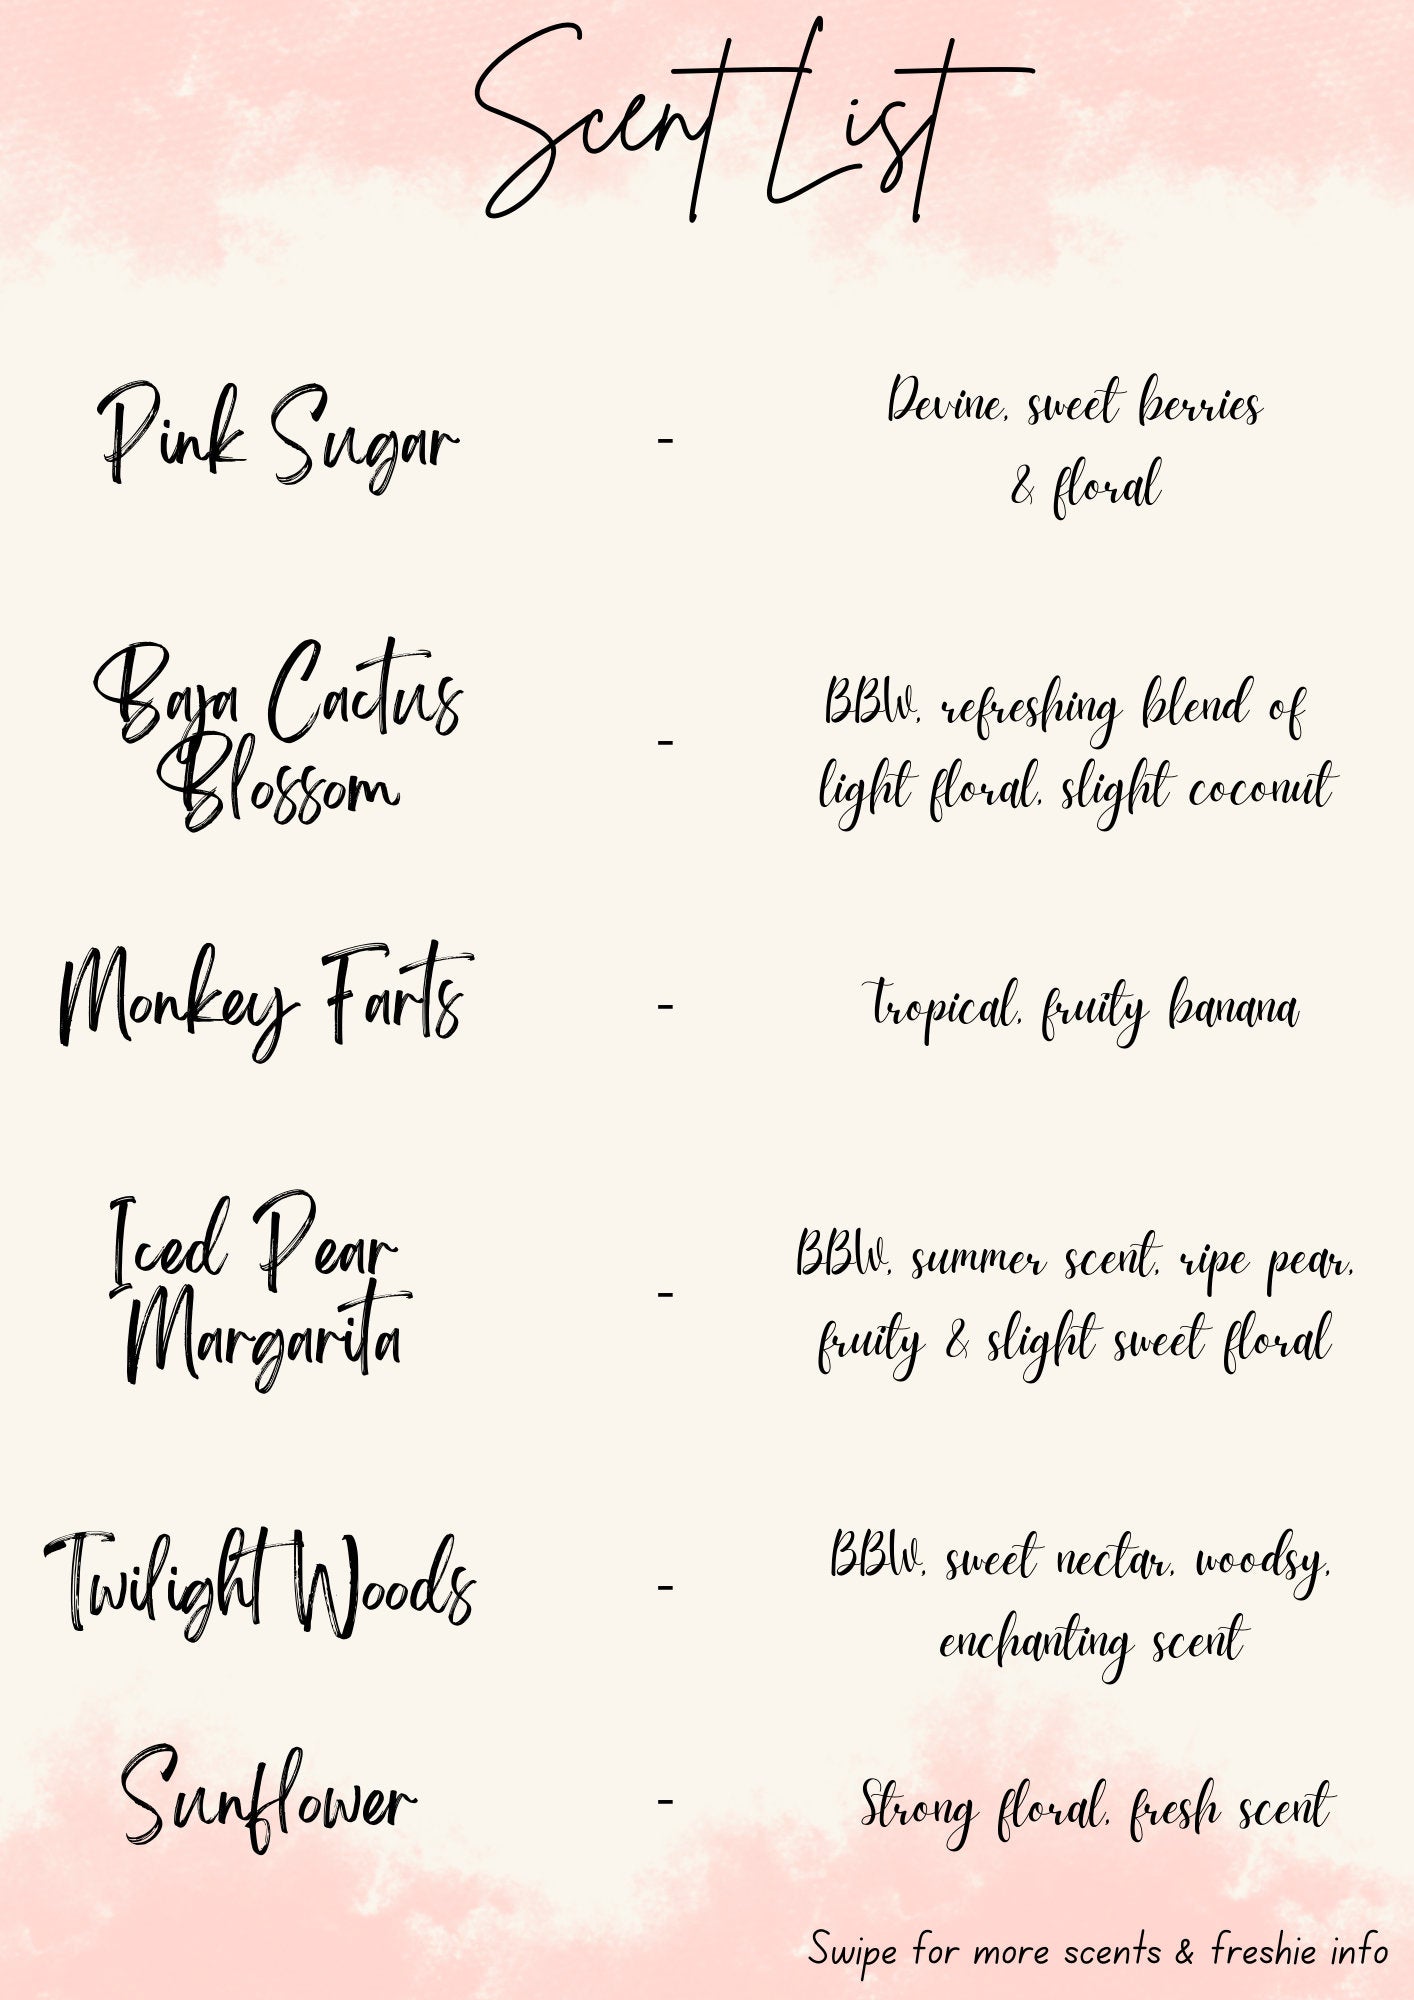 Scent List
Pink Sugar
-
Devine, sweet berries
& floral
Baja Cactus
Blossom
-
BBW, refreshing blend of
light floral, slight coconut
Monkey Farts
-
tropical, fruity banana
Iced Pear
Margarita
-
BBW, summer scent, ripe pear,
fruity & slight sweet floral
Twilight Woods
-
BBW, sweet nectar, woodsy,
enchanting scent
Sunflower
-
Strong floral, fresh scent
Swipe for more scents & freshie info